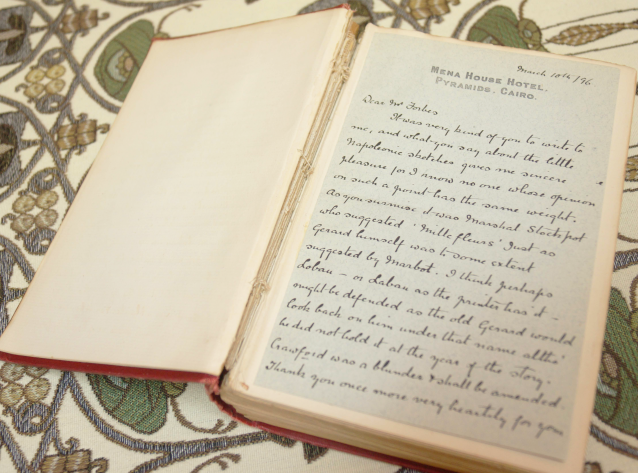 March 10th/96
MENA HOUSE HOTEL.
PYRAMIDS. CAIRO.
Dear Mr Forbes
It was very kind of you to write to
me, and what you say about the little
Napoleonic sketches gives me sincere
pleasure for I know no one whose opinion
on such a point has the same weight.
As you surmise it was Marshal Stockpot
who suggested 'Mille fleurs' Just as
Gerard himself was to some extent
suggested by Marbot. I think perhaps
Lobau - or Labau as the printer has it -
might be defended as the old Gerard would
look back on him under that name altho'
he did not hold it at the year of the story.
Crawford was a blunder & shall be amended.
Thank you once more very heartily for you